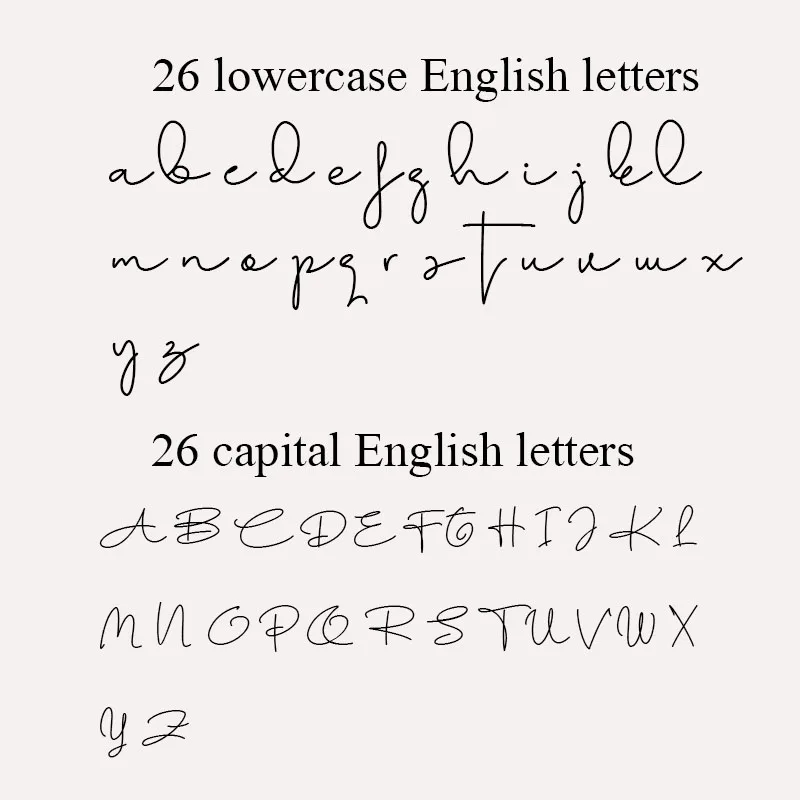 26 lowercase English letters
a b c d e f g h i j k l
m n o p q r s t u v w x
y z
26 capital English letters
A B C D E F G H I J K L
M N O P Q R S T U V W X
Y Z